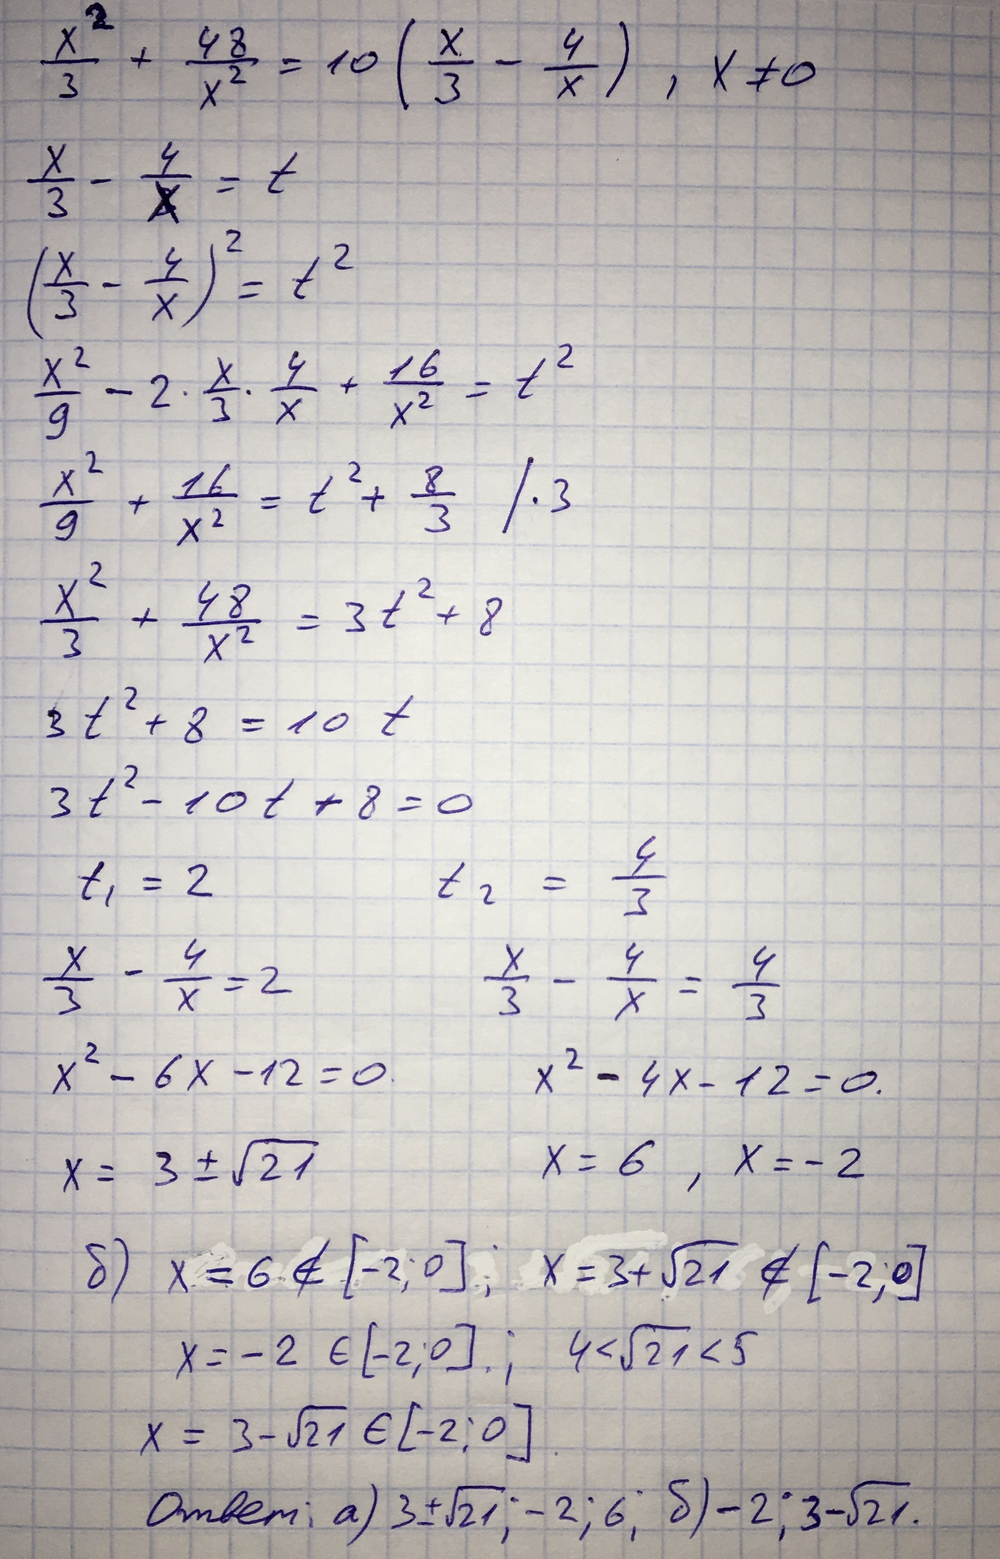 x²/3 + 48/x² = 10 (x/3 - 4/x) , x ≠ 0
x/3 - 4/x = t
(x/3 - 4/x)² = t²
x²/9 - 2 · x/3 · 4/x + 16/x² = t²
x²/9 + 16/x² = t² + 8/3 / · 3
x²/3 + 48/x² = 3t² + 8
3t² + 8 = 10 t
3t² - 10t + 8 = 0
t₁ = 2 t₂ = 4/3
x/3 - 4/x = 2 x/3 - 4/x = 4/3
x² - 6x - 12 = 0. x² - 4x - 12 = 0.
x = 3 ± √21 x = 6 , x = -2
б) x = 6 ∉ [-2; 0]; x = 3 + √21 ∉ [-2; 0]
x = -2 ∈ [-2; 0].; 4 < √21 < 5
x = 3 - √21 ∈ [-2; 0].
Ответ: а) 3 ± √21; -2; 6; б) -2; 3 - √21.